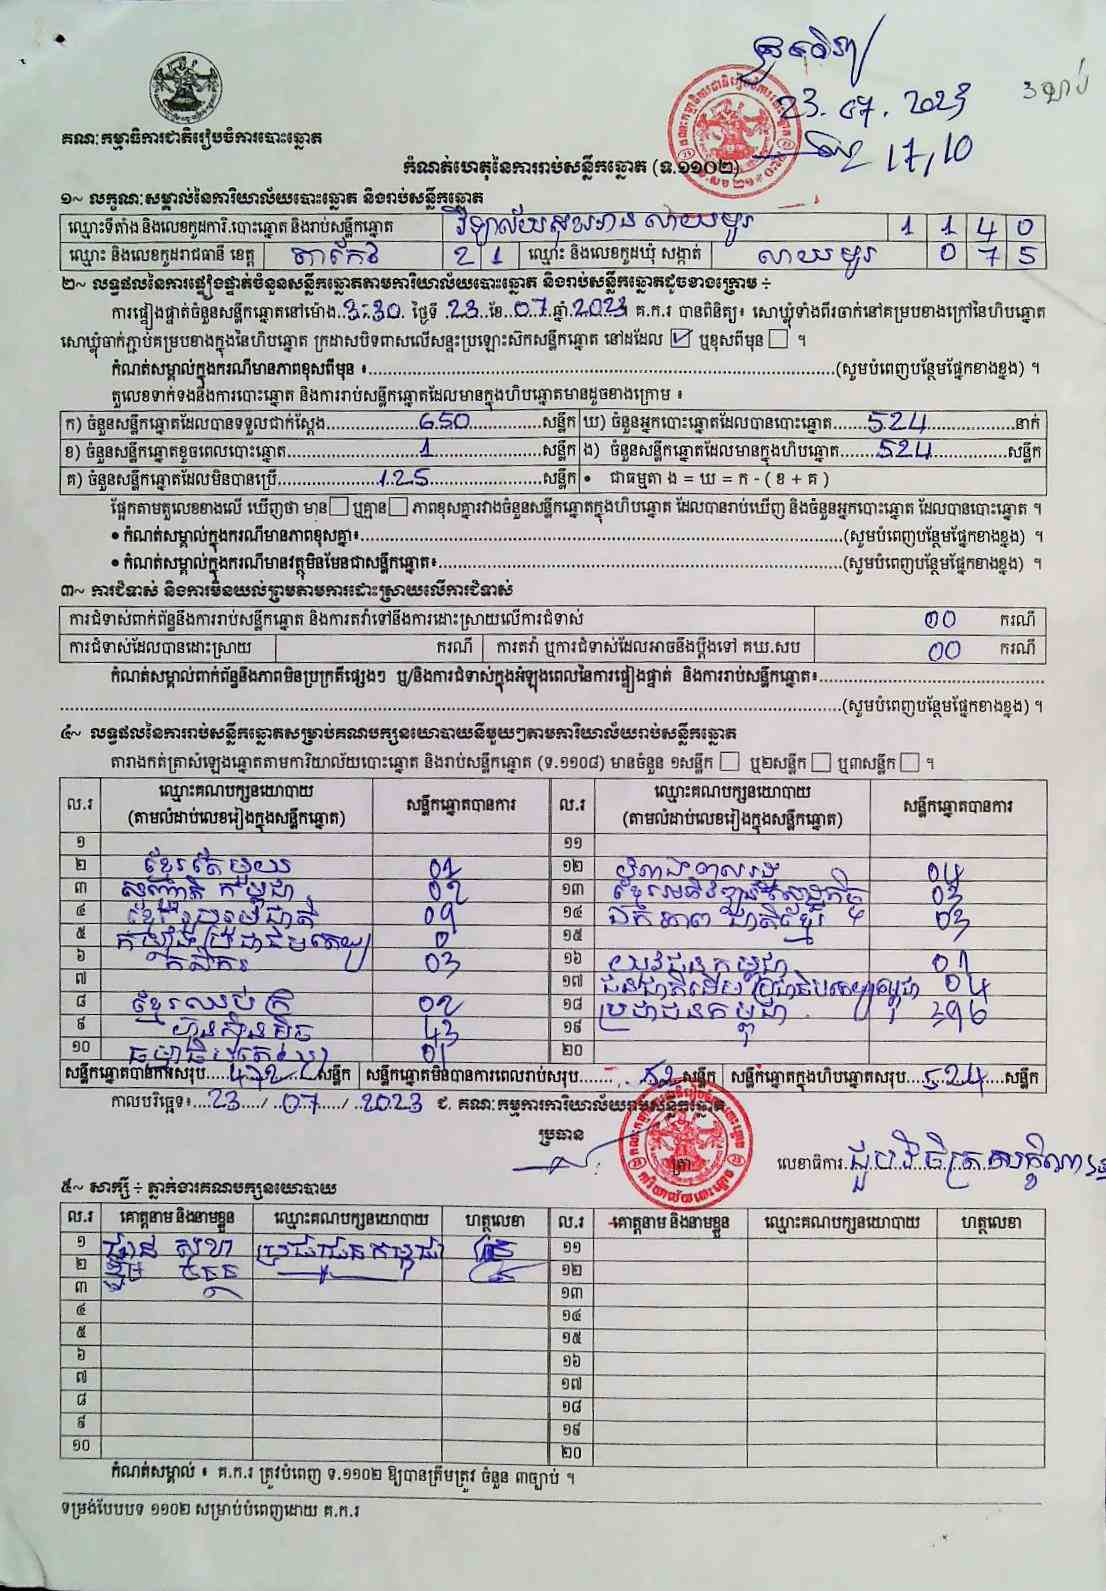 23.07.2023
17,10
គណៈកម្មាធិការជាតិរៀបចំការបោះឆ្នោត
កំណត់ហេតុនៃការរាប់សន្លឹកឆ្នោត (ទ.១១០២)
១~ លក្ខណៈសម្គាល់នៃការិយាល័យបោះឆ្នោត និងរាប់សន្លឹកឆ្នោត
ឈ្មោះទីតាំង និងលេខកូដការិ.បោះឆ្នោត និងរាប់សន្លឹកឆ្នោត វិទ្យាល័យ 1 1 4 0
ឈ្មោះ និងលេខកូដរាជធានី ខេត្ត តាកែវ 2 1 ឈ្មោះ និងលេខកូដឃុំ សង្កាត់ 0 7 5
២~ លទ្ធផលនៃការផ្ទៀងផ្ទាត់ចំនួនសន្លឹកឆ្នោតតាមការិយាល័យបោះឆ្នោត និងរាប់សន្លឹកឆ្នោតដូចខាងក្រោម ÷
ការផ្ទៀងផ្ទាត់ចំនួនសន្លឹកឆ្នោតនៅម៉ោង 3:30 ថ្ងៃទី 23 ខែ 07 ឆ្នាំ 2023 គ.ក.រ បានពិនិត្យ៖ សោឃ្លុំទាំងពីរចាក់នៅគម្របខាងក្រៅនៃហិបឆ្នោត
សោឃ្លុំចាក់ភ្ជាប់គម្របខាងក្នុងនៃហិបឆ្នោត ក្រដាសបិទពាសលើសន្ទះប្រឡោះស៊កសន្លឹកឆ្នោត នៅដដែល ☑ ឬខុសពីមុន ☐ ។
កំណត់សម្គាល់ក្នុងករណីមានភាពខុសពីមុន ៖ (សូមបំពេញបន្ថែមផ្នែកខាងខ្នង) ។
តួលេខទាក់ទងនឹងការបោះឆ្នោត និងការរាប់សន្លឹកឆ្នោតដែលមានក្នុងហិបឆ្នោតមានដូចខាងក្រោម ៖
ក) ចំនួនសន្លឹកឆ្នោតដែលបានទទួលជាក់ស្តែង 650 សន្លឹក ឃ) ចំនួនអ្នកបោះឆ្នោតដែលបានបោះឆ្នោត 524 នាក់
ខ) ចំនួនសន្លឹកឆ្នោតខូចពេលបោះឆ្នោត 1 សន្លឹក ង) ចំនួនសន្លឹកឆ្នោតដែលមានក្នុងហិបឆ្នោត 524 សន្លឹក
គ) ចំនួនសន្លឹកឆ្នោតដែលមិនបានប្រើ 125 សន្លឹក • ជាធម្មតា ង = ឃ = ក - ( ខ + គ )
ផ្អែកតាមតួលេខខាងលើ ឃើញថា មាន ☐ ឬគ្មាន ☐ ភាពខុសគ្នារវាងចំនួនសន្លឹកឆ្នោតក្នុងហិបឆ្នោត ដែលបានរាប់ឃើញ និងចំនួនអ្នកបោះឆ្នោត ដែលបានបោះឆ្នោត ។
• កំណត់សម្គាល់ក្នុងករណីមានភាពខុសគ្នា៖ (សូមបំពេញបន្ថែមផ្នែកខាងខ្នង) ។
• កំណត់សម្គាល់ក្នុងករណីមានវត្ថុមិនមែនជាសន្លឹកឆ្នោត៖ (សូមបំពេញបន្ថែមផ្នែកខាងខ្នង) ។
៣~ ការជំទាស់ និងការមិនយល់ព្រមតាមការដោះស្រាយលើការជំទាស់
ការជំទាស់ពាក់ព័ន្ធនឹងការរាប់សន្លឹកឆ្នោត និងការតវ៉ាទៅនឹងការដោះស្រាយលើការជំទាស់ 00 ករណី
ការជំទាស់ដែលបានដោះស្រាយ ករណី ការតវ៉ា ឬការជំទាស់ដែលអាចនឹងប្តឹងទៅ គឃ.សប 00 ករណី
កំណត់សម្គាល់ពាក់ព័ន្ធនឹងភាពមិនប្រក្រតីផ្សេងៗ ឬ/និងការជំទាស់ក្នុងអំឡុងពេលនៃការផ្ទៀងផ្ទាត់ និងការរាប់សន្លឹកឆ្នោត៖
(សូមបំពេញបន្ថែមផ្នែកខាងខ្នង) ។
៤~ លទ្ធផលនៃការរាប់សន្លឹកឆ្នោតសម្រាប់គណបក្សនយោបាយនីមួយៗតាមការិយាល័យរាប់សន្លឹកឆ្នោត
តារាងកត់ត្រាសំឡេងឆ្នោតតាមការិយាល័យបោះឆ្នោត និងរាប់សន្លឹកឆ្នោត (ទ.១១០៨) មានចំនួន ១សន្លឹក ☐ ឬ២សន្លឹក ☐ ឬ៣សន្លឹក ☐ ។
ល.រ ឈ្មោះគណបក្សនយោបាយ (តាមលំដាប់លេខរៀងក្នុងសន្លឹកឆ្នោត) សន្លឹកឆ្នោតបានការ ល.រ ឈ្មោះគណបក្សនយោបាយ (តាមលំដាប់លេខរៀងក្នុងសន្លឹកឆ្នោត) សន្លឹកឆ្នោតបានការ
១ ១១
២ ខ្មែរតែមួយ 01 ១២ 04
៣ សញ្ជាតិកម្ពុជា 02 ១៣ ខ្មែរអភិវឌ្ឍន៍សេដ្ឋកិច្ច 03
៤ ខ្មែររួបរួមជាតិ 09 ១៤ ឯកភាពជាតិខ្មែរ 03
៥ 0 ១៥
៦ កសិករ 03 ១៦ យុវជនកម្ពុជា 01
៧ ១៧ ជនជាតិដើមប្រជាធិបតេយ្យកម្ពុជា 04
៨ ខ្មែរឈប់ក្រ 02 ១៨ ប្រជាជនកម្ពុជា 396
៩ ហ៊្វុនស៊ិនប៉ិច 43 ១៩
១០ ធម្មាធិបតេយ្យ 01 ២០
សន្លឹកឆ្នោតបានការសរុប 472 សន្លឹក សន្លឹកឆ្នោតមិនបានការពេលរាប់សរុប 52 សន្លឹក សន្លឹកឆ្នោតក្នុងហិបឆ្នោតសរុប 524 សន្លឹក
កាលបរិច្ឆេទ៖ 23 / 07 / 2023 ជ. គណៈកម្មការការិយាល័យរាប់សន្លឹកឆ្នោត
ប្រធាន
ត្រា លេខាធិការ
៥~ សាក្សី ÷ ភ្នាក់ងារគណបក្សនយោបាយ
ល.រ គោត្តនាម និងនាមខ្លួន ឈ្មោះគណបក្សនយោបាយ ហត្ថលេខា ល.រ គោត្តនាម និងនាមខ្លួន ឈ្មោះគណបក្សនយោបាយ ហត្ថលេខា
១ សុខា ប្រជាជនកម្ពុជា ១១
២ ១២
៣ ១៣
៤ ១៤
៥ ១៥
៦ ១៦
៧ ១៧
៨ ១៨
៩ ១៩
១០ ២០
កំណត់សម្គាល់ ៖ គ.ក.រ ត្រូវបំពេញ ទ.១១០២ ឱ្យបានត្រឹមត្រូវ ចំនួន ៣ច្បាប់ ។
ទម្រង់បែបបទ ១១០២ សម្រាប់បំពេញដោយ គ.ក.រ